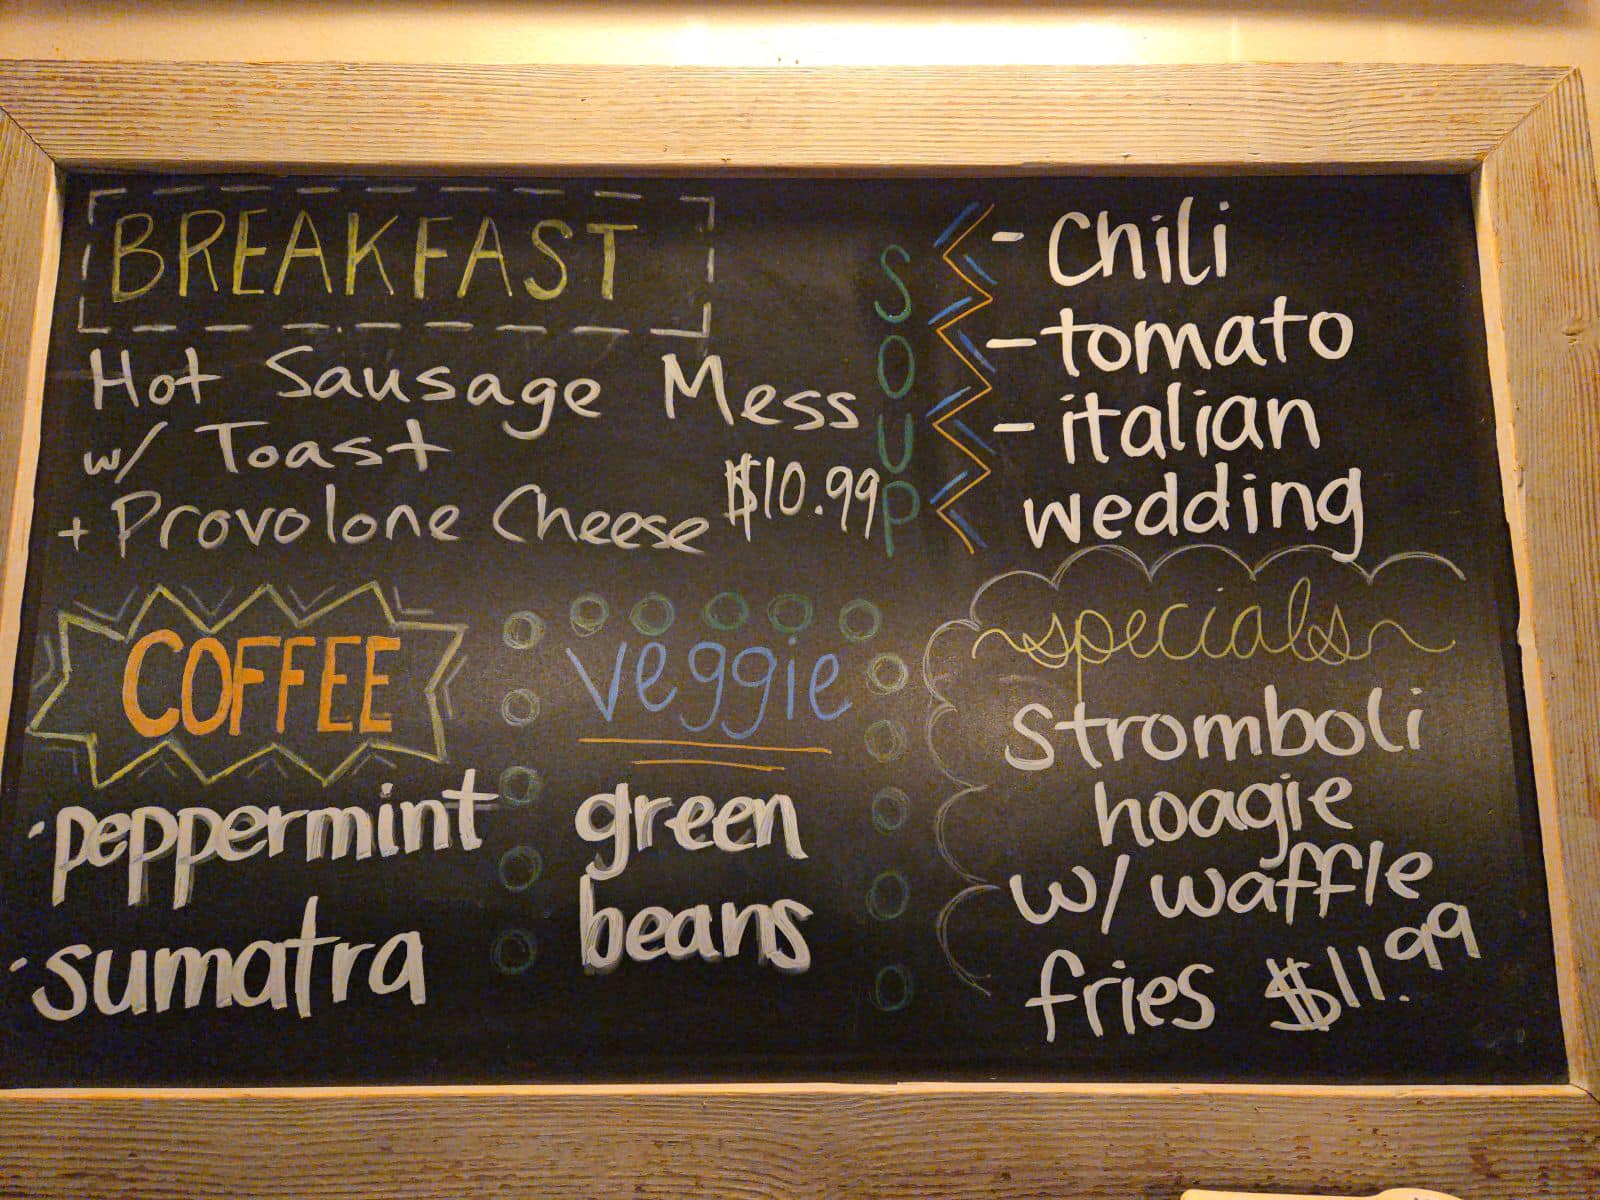 BREAKFAST
Hot Sausage Mess
w/ Toast
+ Provolone Cheese $10.99
SOUP
- Chili
- tomato
- italian
wedding
COFFEE
· peppermint
· sumatra
veggie
green
beans
specials
Stromboli
hoagie
w/ waffle
fries $11.99